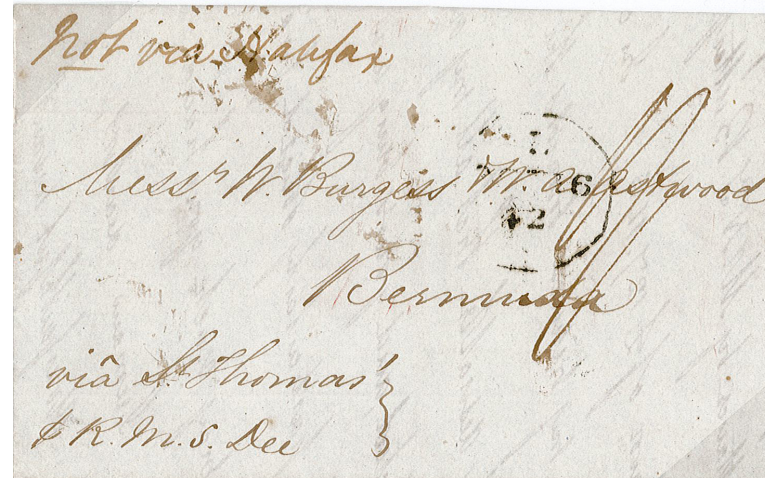 Not via Halifax
L
Messrs W. Burgess W.
wood
6
42
Bermuda
viâ St. Thomas'
R. M. S. Dee